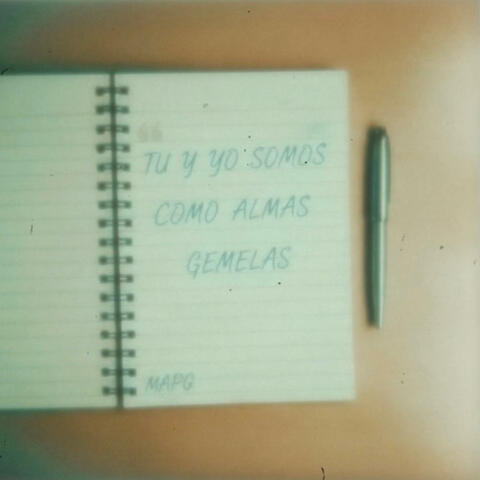 “
TU Y YO SOMOS
COMO ALMAS
GEMELAS
MAPG